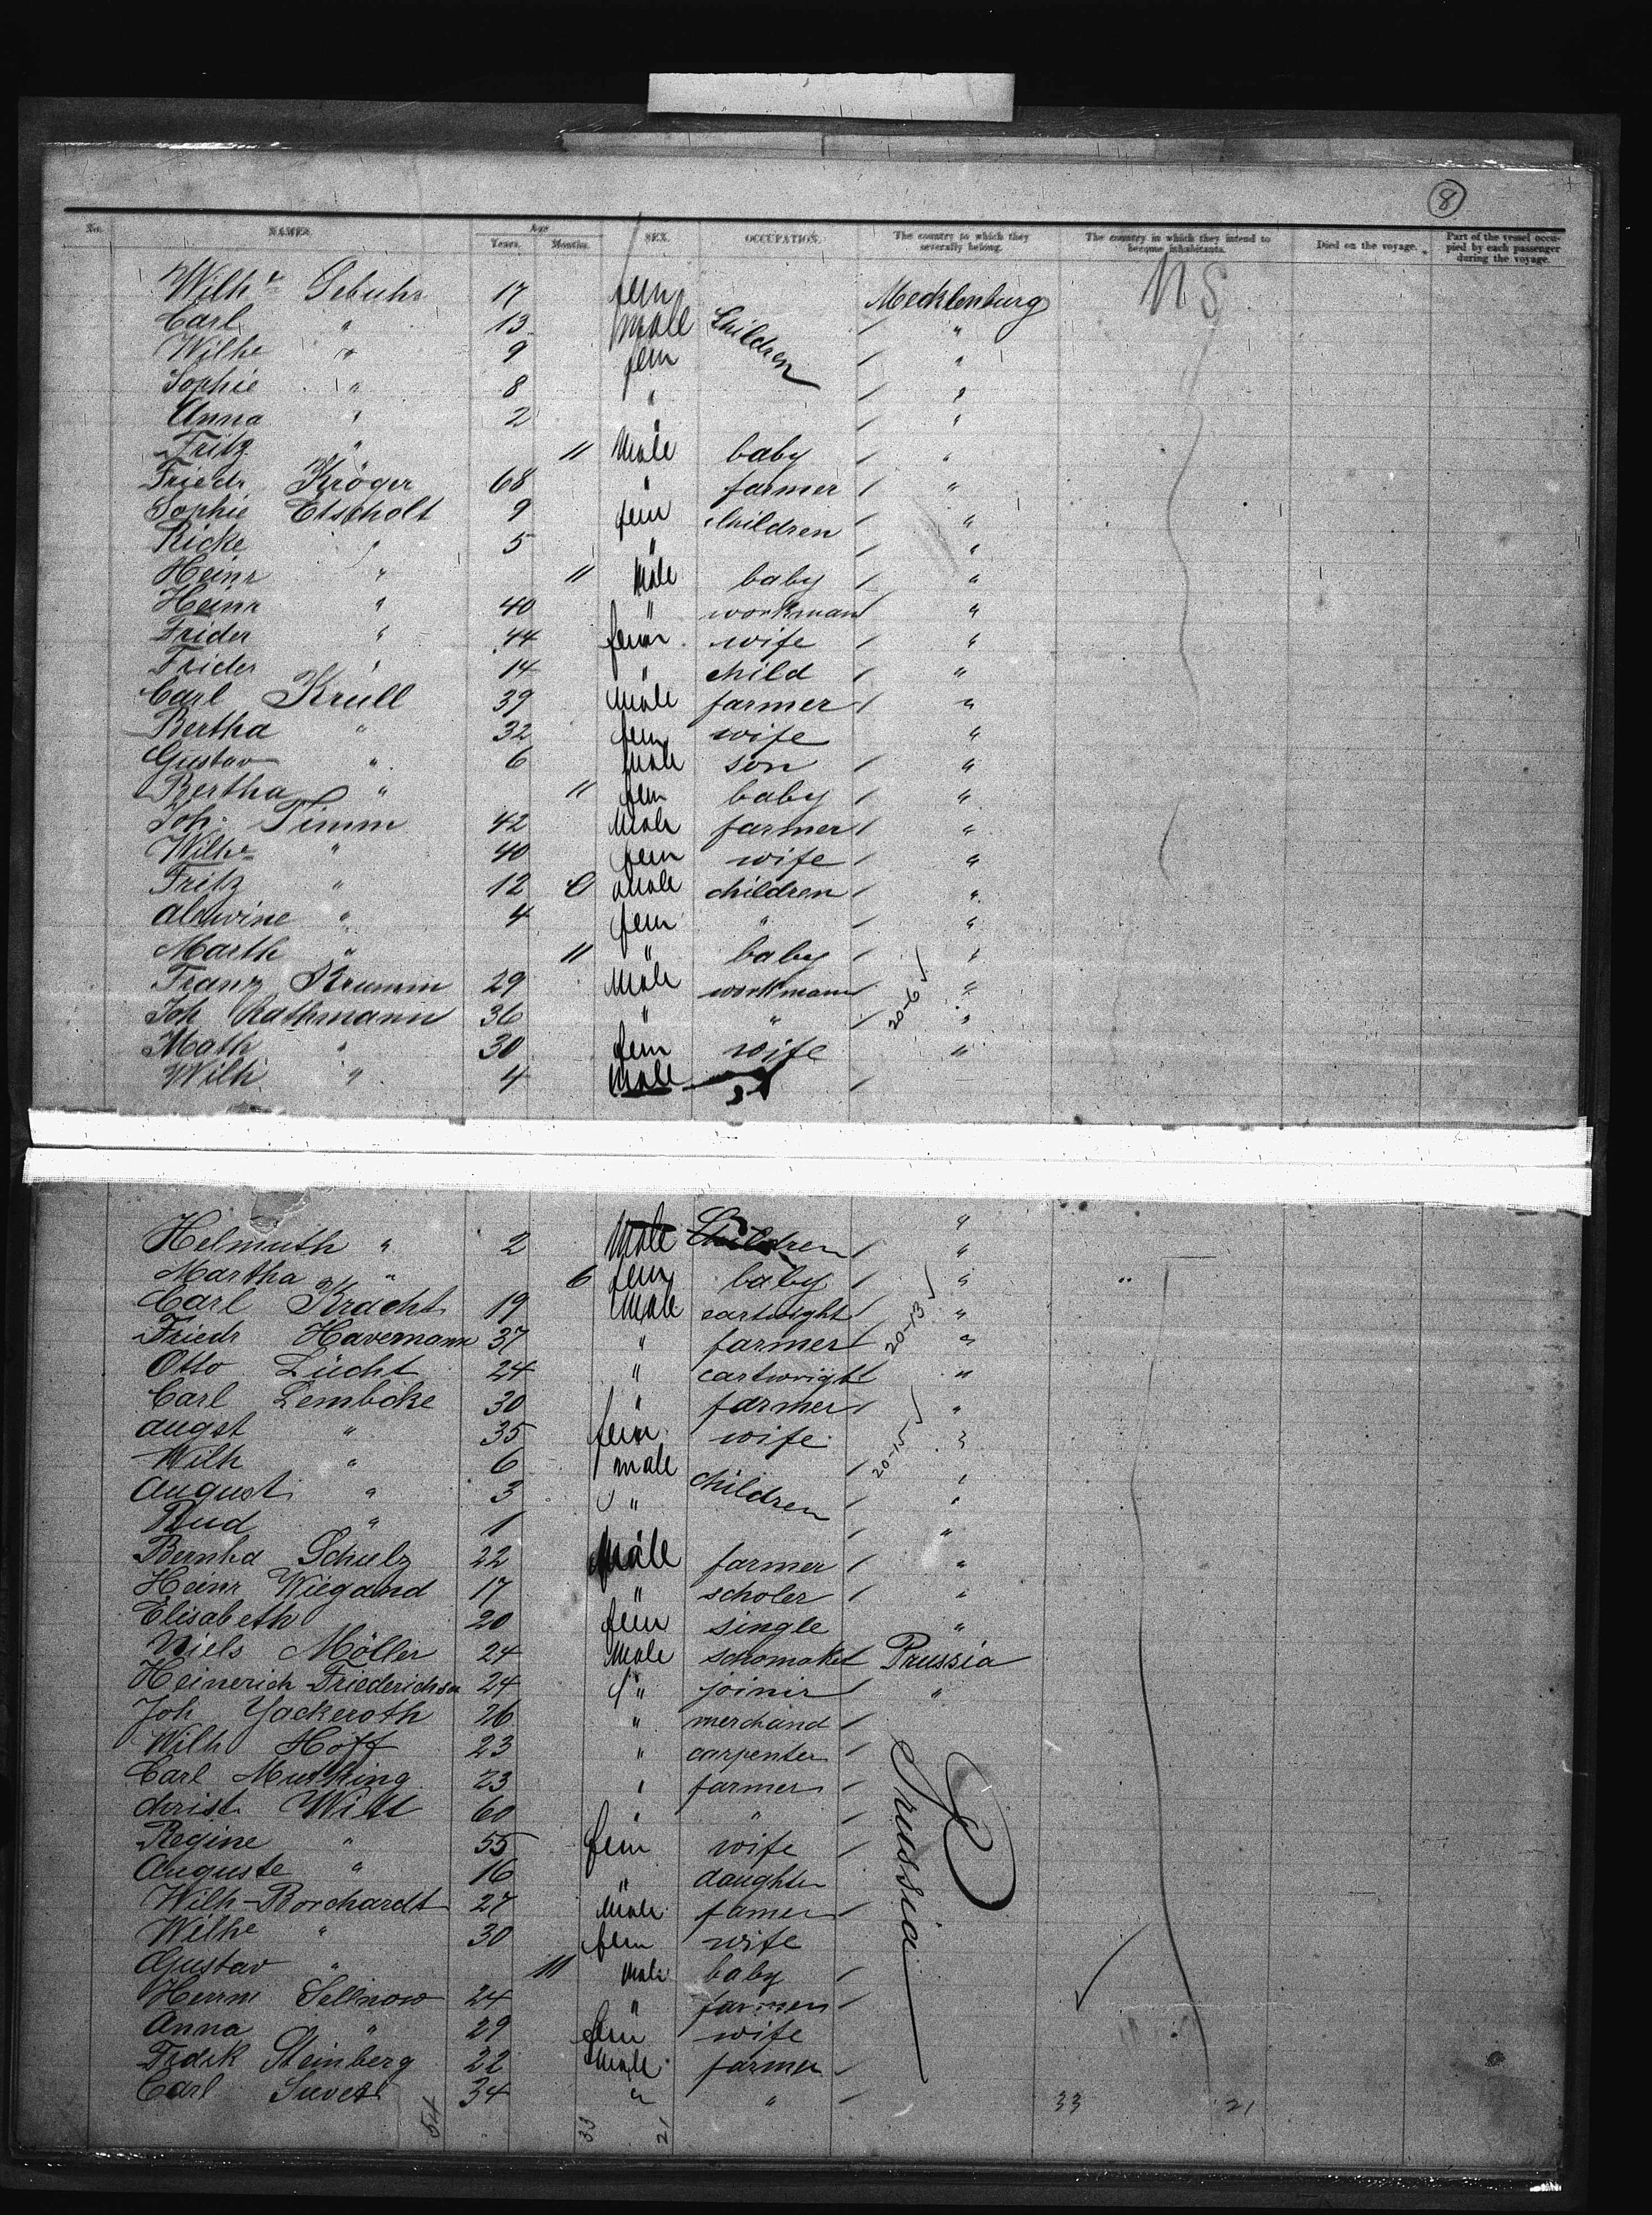 8
No. NAMES. Age Years. Months. SEX. OCCUPATION. The country to which they severally belong. The country in which they intend to become inhabitants. Died on the voyage. Part of the vessel occupied by each passenger during the voyage.
Wilhe 17 fem Mecklenburg U S
Carl " 13 male Children "
Wilhe " 9 fem "
Sophie " 8 " "
Anna " 2 " "
Fritz " 11 Male baby "
Friedr Kröger 68 " farmer "
Sophie Etscholt 9 fem children "
Ricke " 5 " "
Heinr " 11 Male baby "
Heinr " 40 " workman "
Frider " 44 fem wife "
Frider " 14 " child "
Carl Krull 39 Male farmer "
Bertha " 32 fem wife "
Gustav " 6 Male son "
Bertha " 11 fem baby "
Joh. Timm 42 Male farmer "
Wilhe " 40 fem wife "
Fritz " 12 Male children "
Alwine " 4 fem " "
Marth " 11 " baby "
Franz Krumm 29 Male workmann "
Joh Rathmann 36 " " 20-6 "
Math " 30 fem wife "
Wilh " 4 Male
"
Helmuth " 2 Male Children "
Martha " 6 fem baby " "
Carl Kracht 19 Male cartwight "
Friedr Havemann 37 " farmer 20-13 "
Otto Lücht 24 " cartwright "
Carl Lembcke 30 " farmer "
Augst " 35 fem wife "
Wilh " 6 male 20-15 "
August " 3 " children "
Rud " 1 "
Bernhd Schulz 22 Male farmer "
Heinr Wiegand 17 " scholer "
Elisabeth 20 fem single "
Niels Möller 24 Male schomaker Prussia
Heinerich Friederichsen 24 " joinir "
Joh Yackeroth 26 " merchand
Wilh Hoff 23 " carpenter Prussia
Carl 23 " farmer
Christ. Witt 60 " "
Regine " 55 fem wife
Auguste " 16 " daughter
Wilh-Borchardt 27 Male famer
Wilhe " 30 fem wife
Gustav " 11 Male baby
Herrm Sellnow 24 " farmer
Anna " 29 fem wife
Fredk Steinberg 22 Male farmer
Carl 34 " " 33 21
54 33 21